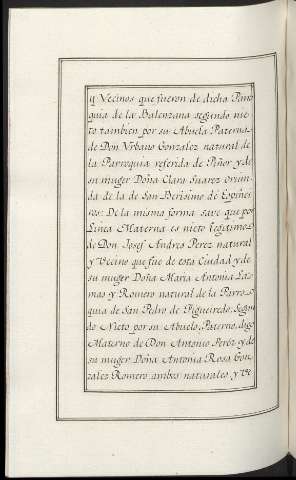 y Vecinos que fueron de dicha Parro
quia de la Balenzana segundo nie-
to tambien por su Abuela Paterna,
de Don Vrbano Gonzalez natural de
la Parroquia referida de Piñor y de
su muger Doña Clara Suarez oriun
da de la de San Berisimo de Espiñei
ros: De la misma forma save que por
Linea Materna es nieto legitimo
de Don Josef Andres Perez natural
y Vecino que fue de esta Ciudad y de
su muger Doña Maria Antonia La
mas y Romero natural de la Parro
quia de San Pedro de Figueiredo: Segun
do Nieto por su Abuelo Paterno, digo
Materno de Don Antonio Perez y de
su muger Doña Antonia Rosa Gon
zalez Romero ambos naturales y Ve